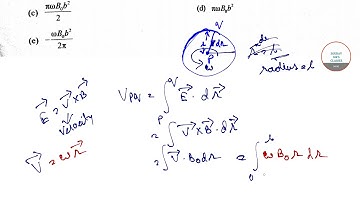 (c) πωB₀b² / 2
(d) πωB₀b²
(e) - ωB₀b² / 2π
radius = l
E⃗ = V⃗ × B⃗
velocity
V⃗ = ω r⃗
V_PQ = ∫_P^Q E⃗ · dr⃗
= ∫ V⃗ × B⃗ · dr⃗
= ∫ V⃗ · B₀ dr = ∫_0^b ω B₀ r dr